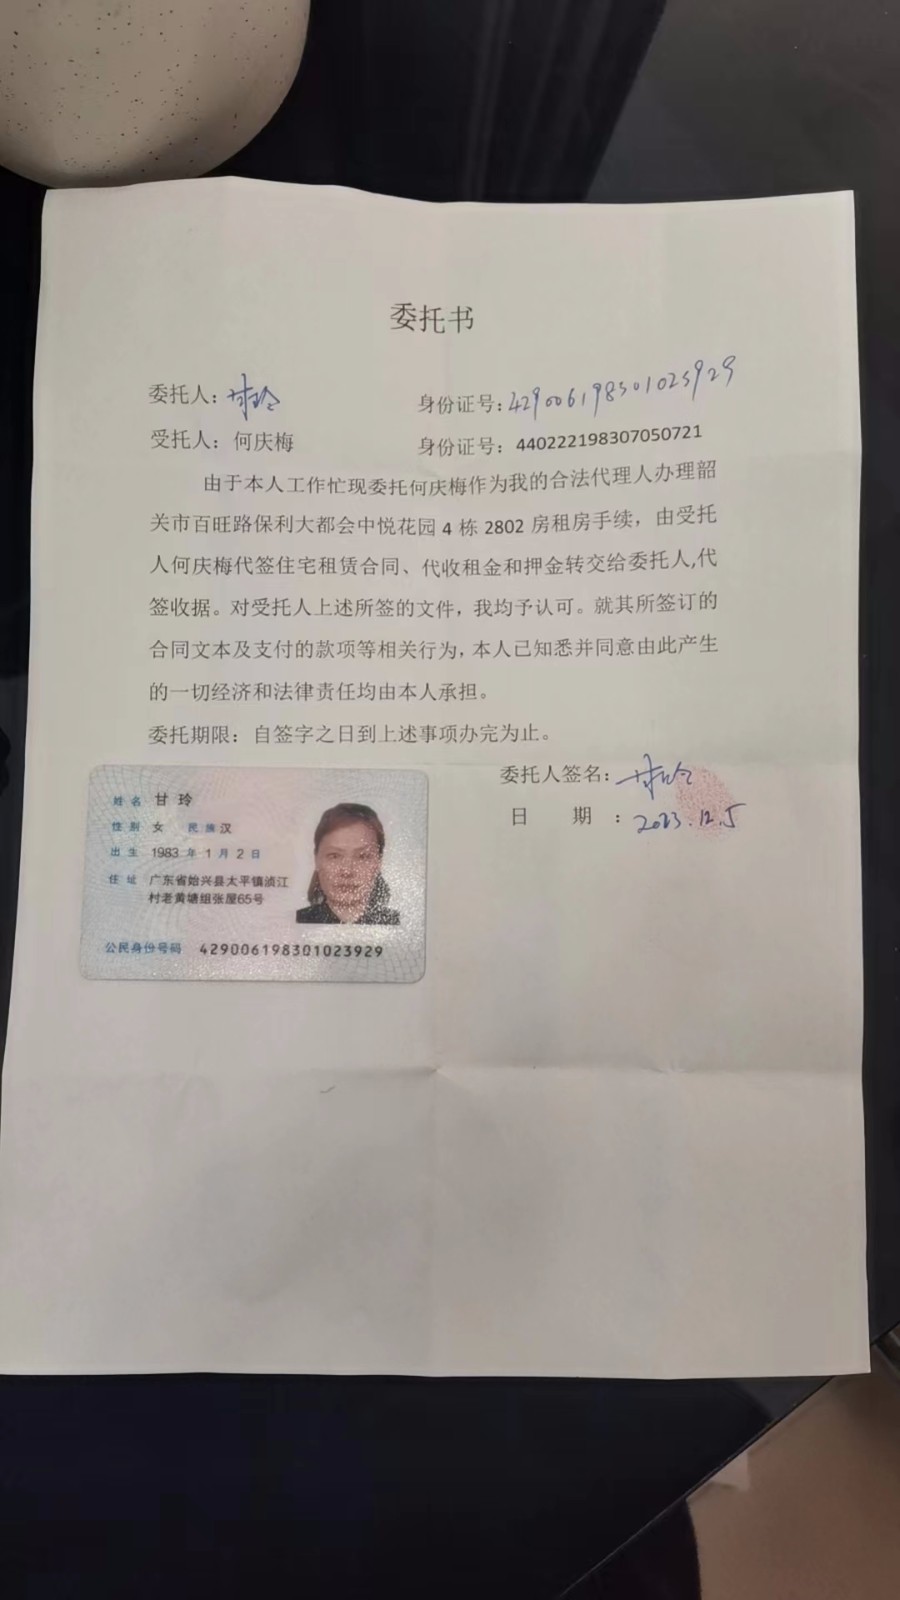 委托书
委托人：甘玲 身份证号：429006198301023929
受托人：何庆梅 身份证号：440222198307050721
由于本人工作忙现委托何庆梅作为我的合法代理人办理韶
关市百旺路保利大都会中悦花园 4 栋 2802 房租房手续，由受托
人何庆梅代签住宅租赁合同、代收租金和押金转交给委托人,代
签收据。对受托人上述所签的文件，我均予认可。就其所签订的
合同文本及支付的款项等相关行为，本人已知悉并同意由此产生
的一切经济和法律责任均由本人承担。
委托期限：自签字之日到上述事项办完为止。
委托人签名：甘玲
日 期 ：2023.12.5
姓名 甘玲
性别 女 民族 汉
出生 1983 年 1 月 2 日
住址 广东省始兴县太平镇浈江
村老黄塘组张屋65号
公民身份号码 429006198301023929